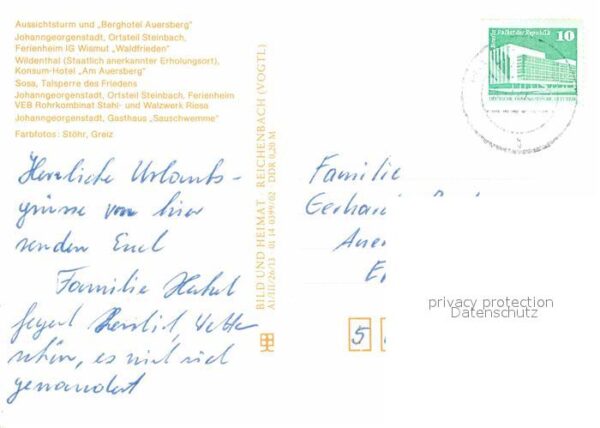 Aussichtsturm und „Berghotel Auersberg“
Johanngeorgenstadt, Ortsteil Steinbach,
Ferienheim IG Wismut „Waldfrieden“
Wildenthal (Staatlich anerkannter Erholungsort),
Konsum-Hotel „Am Auersberg“
Sosa, Talsperre des Friedens
Johanngeorgenstadt, Ortsteil Steinbach, Ferienheim
VEB Rohrkombinat Stahl- und Walzwerk Riesa
Johanngeorgenstadt, Gasthaus „Sauschwemme“
Farbfotos: Stöhr, Greiz
Herzliche Urlaubs-
grüsse von hier
senden Euch
Familie
schön, es wird viel
gewandert
BILD UND HEIMAT REICHENBACH (VOGTL)
A1/III/26/13 01 14 0399/02 DDR 0,20 M
Berlin, Palast der Republik
10
DEUTSCHE DEMOKRATISCHE REPUBLIK
Familie
5
privacy protection
Datenschutz